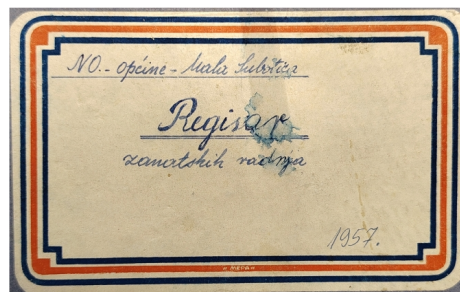 NO. - općine - Mala Subotica
Registar
zanatskih radnja
1957.